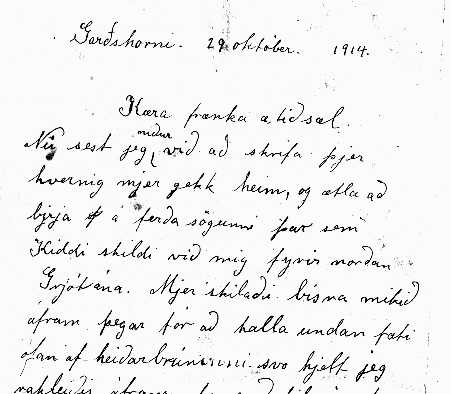 Garðshorni. 29 október. 1914.
Kæra frænka ætið sæl.
Nú sest jeg niður við að skrifa þjer
hvernig mjer gekk heim, og ætla að
birja á ferða sögunni þar sem
Kiddi skildi við mig fyrir norðan
Grjótána. Mjer skilaði bísna mikið
áfram þegar fór að halla undan fæti
ofan af heiðarbrúninni svo hjelt jeg
áfram